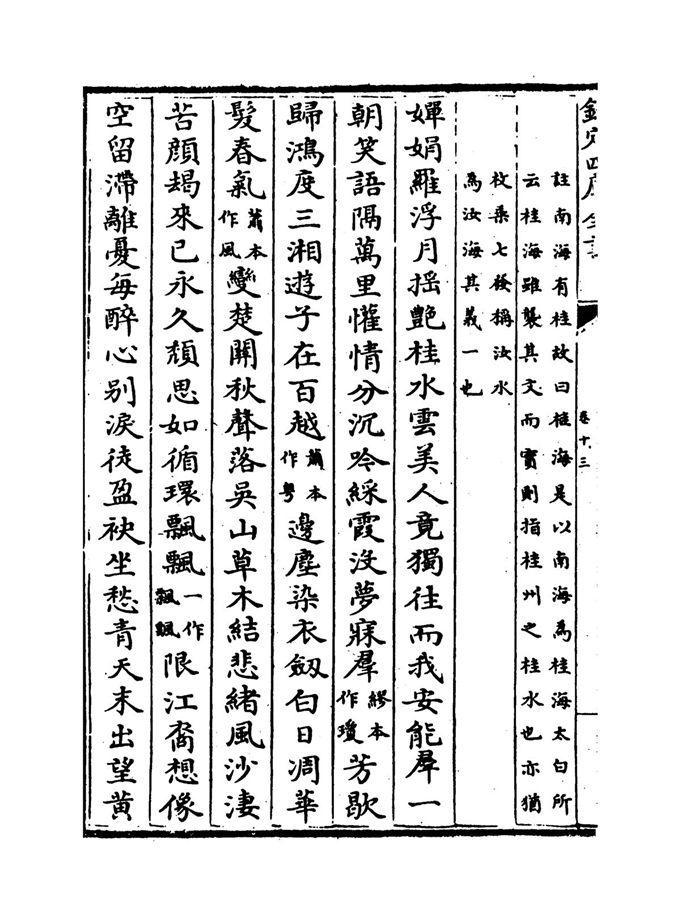 欽定四庫全書
卷十三
註南海有桂故曰桂海是以南海為桂海太白所
云桂海雖襲其文而實則指桂州之桂水也亦猶
枚乗七發稱汝水
為汝海其義一也
嬋娟羅浮月搖艶桂水雲美人竟獨往而我安能羣一
朝笑語隔萬里懽情分沉吟綵霞沒夢寐羣繆本作瓊芳歇
歸鴻度三湘遊子在百越蕭本作粤邊塵染衣劒白日凋華
髮春氣蕭本作風變楚關秋聲落吳山草木結悲緒風沙淒
苦顔朅來已永久頽思如循環飄飄一作飃飃限江裔想像
空留滯離憂每醉心别淚徒盈袂坐愁青天末出望黄